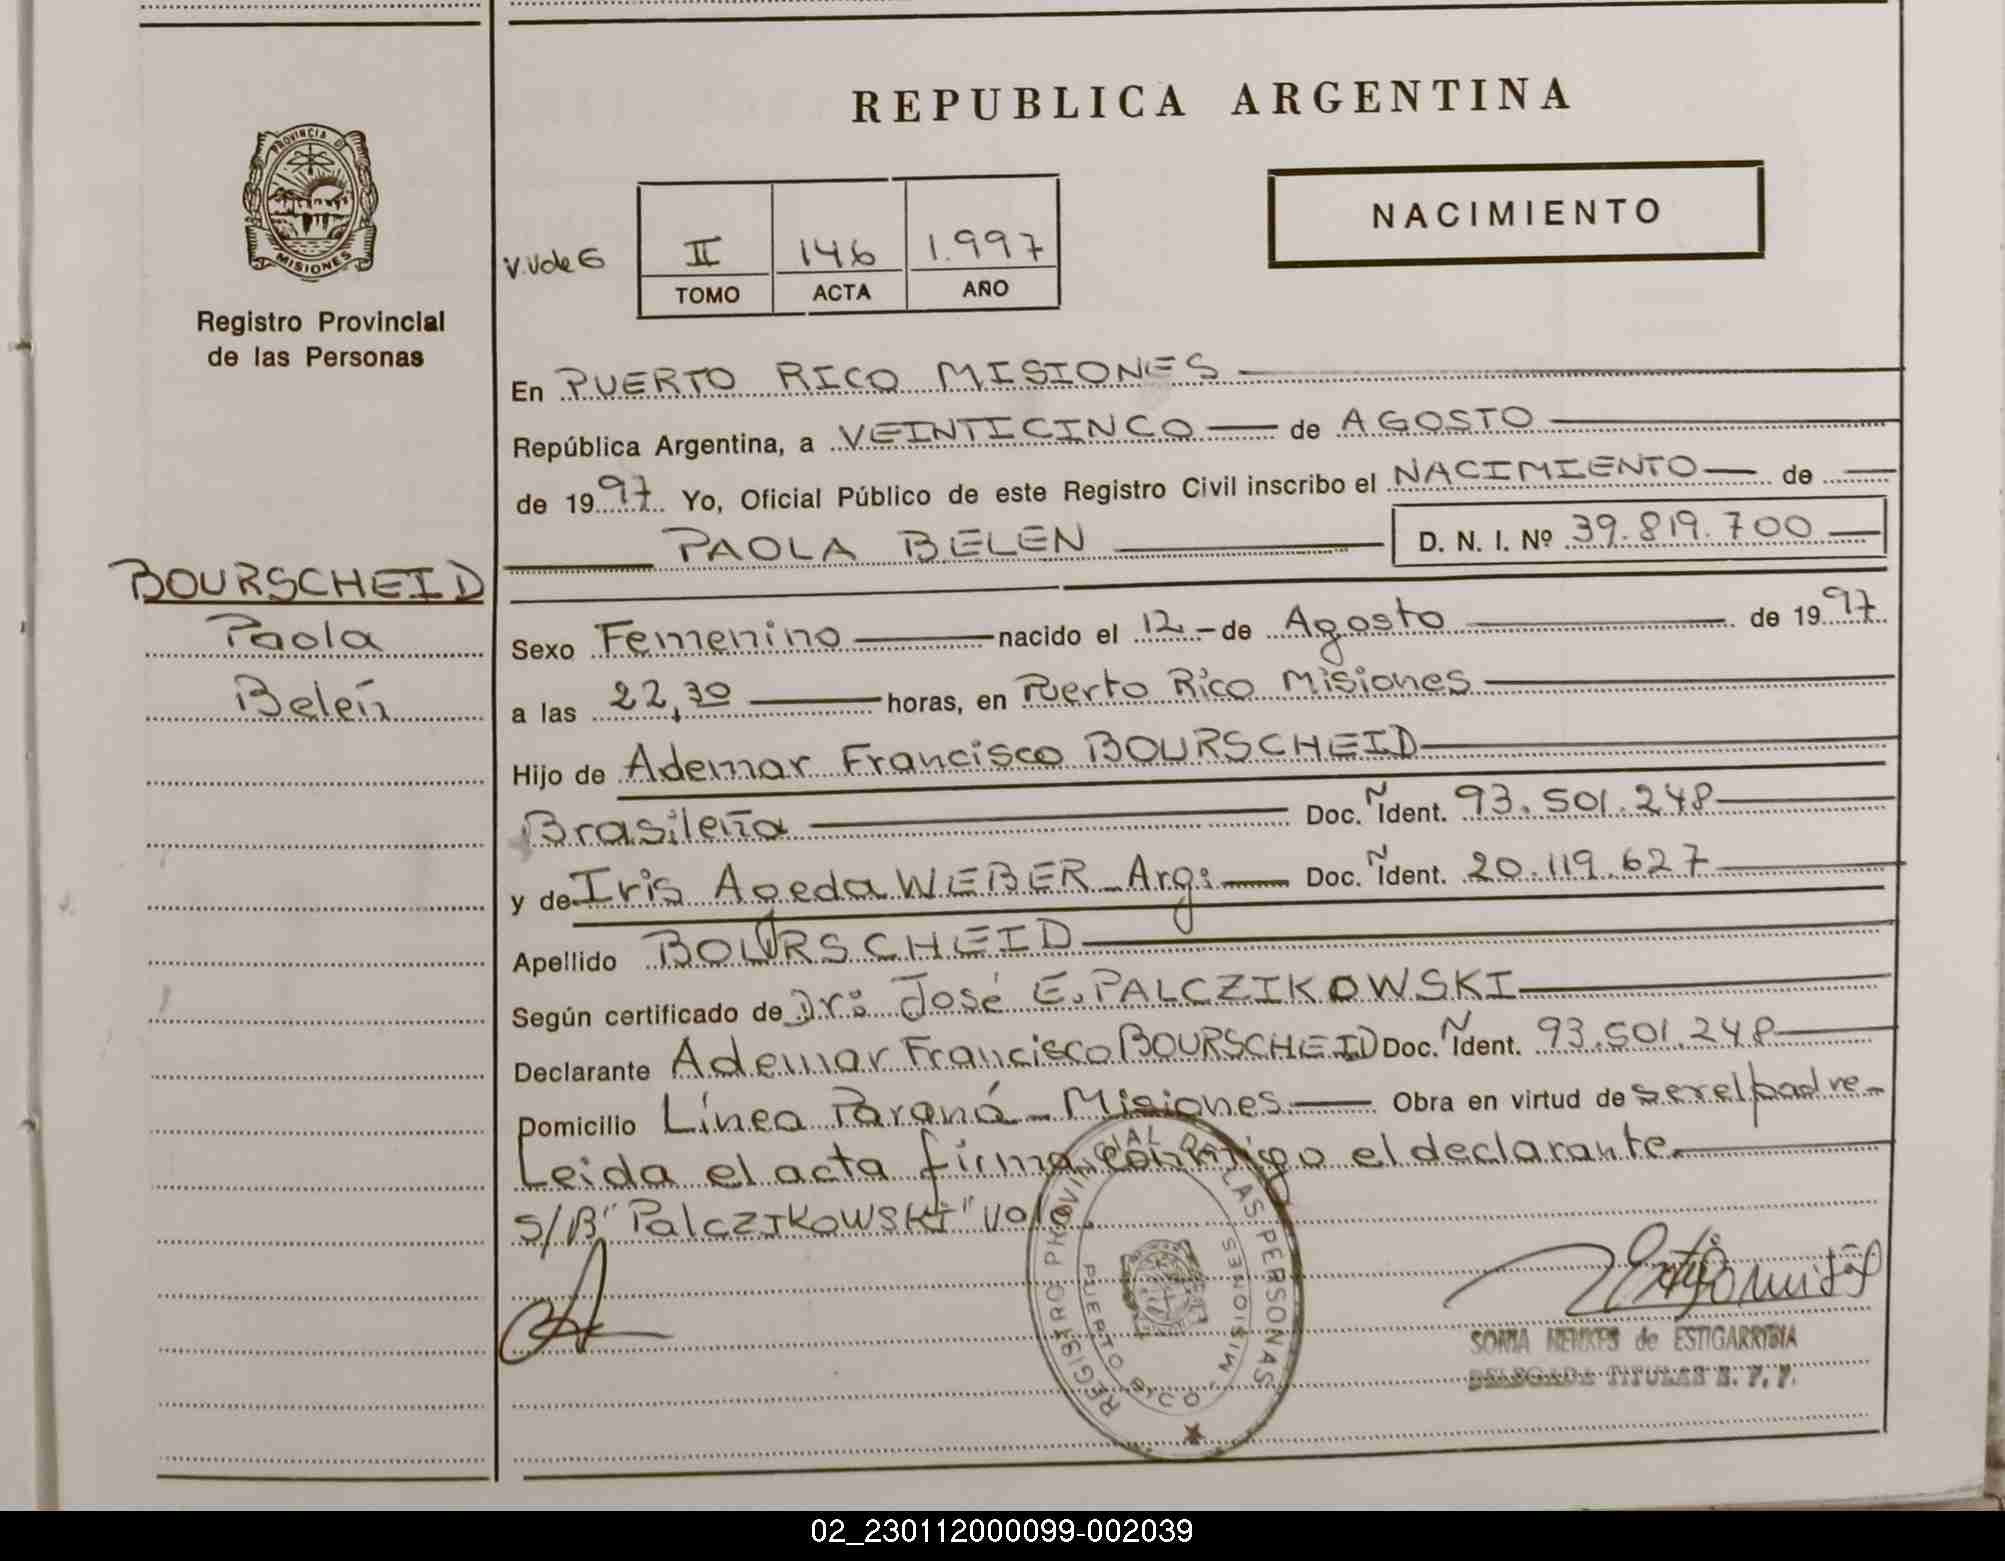 REPUBLICA ARGENTINA
PROVINCIA D
MISIONES
Registro Provincial
de las Personas
NACIMIENTO
II 146 1.997
TOMO ACTA AÑO
En PUERTO RICO MISIONES
República Argentina, a VEINTICINCO de AGOSTO
de 1997 Yo, Oficial Público de este Registro Civil inscribo el NACIMIENTO de
PAOLA BELEN D. N. I. Nº 39.819.700
BOURSCHEID
Paola
Belén
Sexo Femenino nacido el 12 - de Agosto de 1997
a las 22,30 horas, en Puerto Rico Misiones
Hijo de Ademar Francisco BOURSCHEID
Brasileña Doc. Ñ Ident. 93.501.248
y de Iris Ageda WEBER Arg: Doc. Ñ Ident. 20.119.627
Apellido BOURSCHEID
Según certificado de Dr: José E. PALCZIKOWSKI
Declarante Ademar Francisco BOURSCHEID Doc. Ñ Ident. 93.501.248
Domicilio Línea Paraná - Misiones Obra en virtud de ser el padre
Leida el acta firma conmigo el declarante
S/B "PalczIKOWSKI" Vale.
REGISTRO PROVINCIAL DE LAS PERSONAS
PUERTO RICO - MISIONES
SONIA de ESTIGARRIBIA
DELEGADA TITULAR
02_230112000099-002039